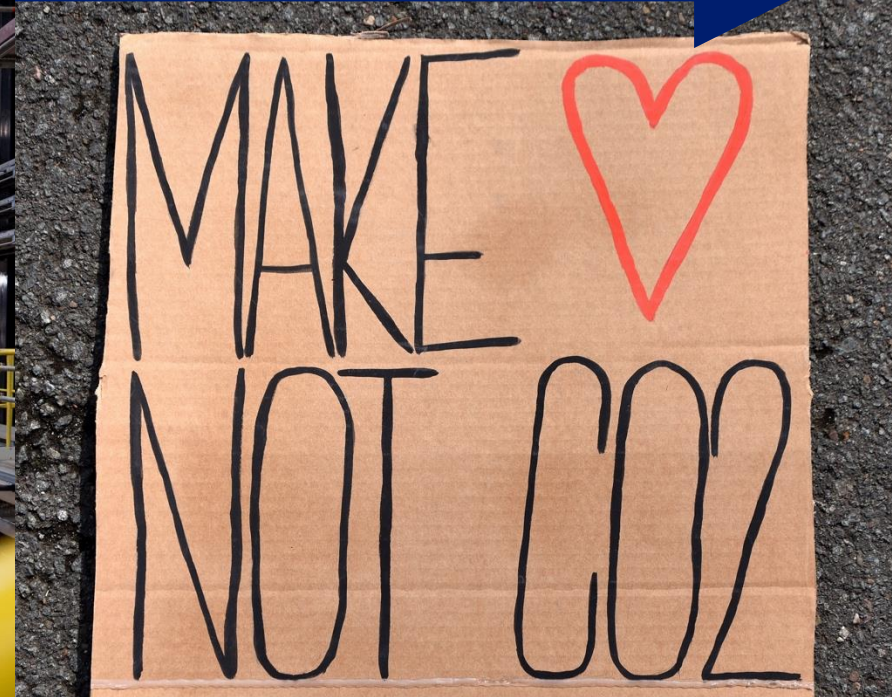 MAKE ♥
NOT CO2